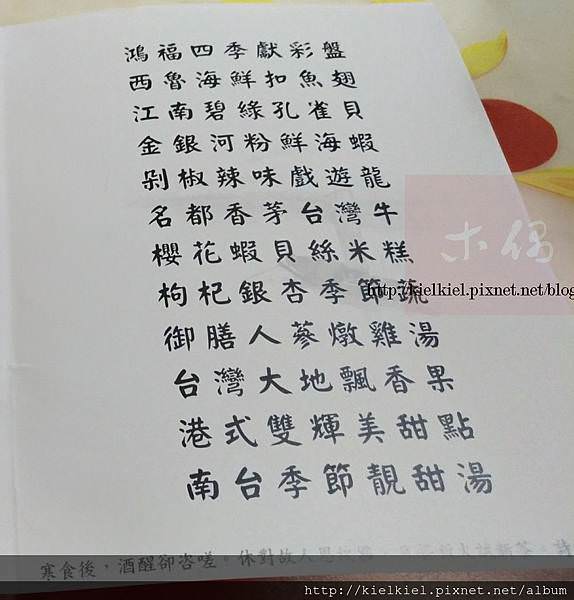 鴻福四季獻彩盤
西魯海鮮扣魚翅
江南碧綠孔雀貝
金銀河粉鮮海蝦
剁椒辣味戲遊龍
名都香茅台灣牛
櫻花蝦貝絲米糕
枸杞銀杏季節蔬
御膳人蔘燉雞湯
台灣大地飄香果
港式雙輝美甜點
南台季節靚甜湯
木偶
http://kielkiel.pixnet.net/blog
寒食後，酒醒卻咨嗟。休對故人
http://kielkiel.pixnet.net/album